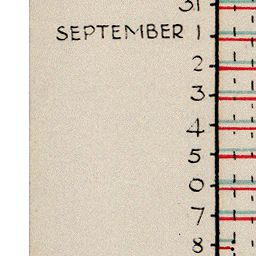 31
SEPTEMBER 1
2
3
4
5
0
7
8